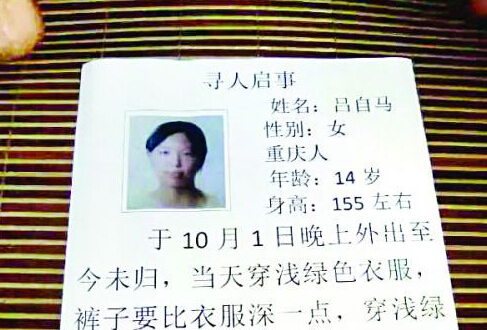 寻人启事
姓名：吕自马
性别：女
重庆人
年龄：14 岁
身高：155 左右
于 10 月 1 日晚上外出至
今未归，当天穿浅绿色衣服，
裤子要比衣服深一点，穿浅绿